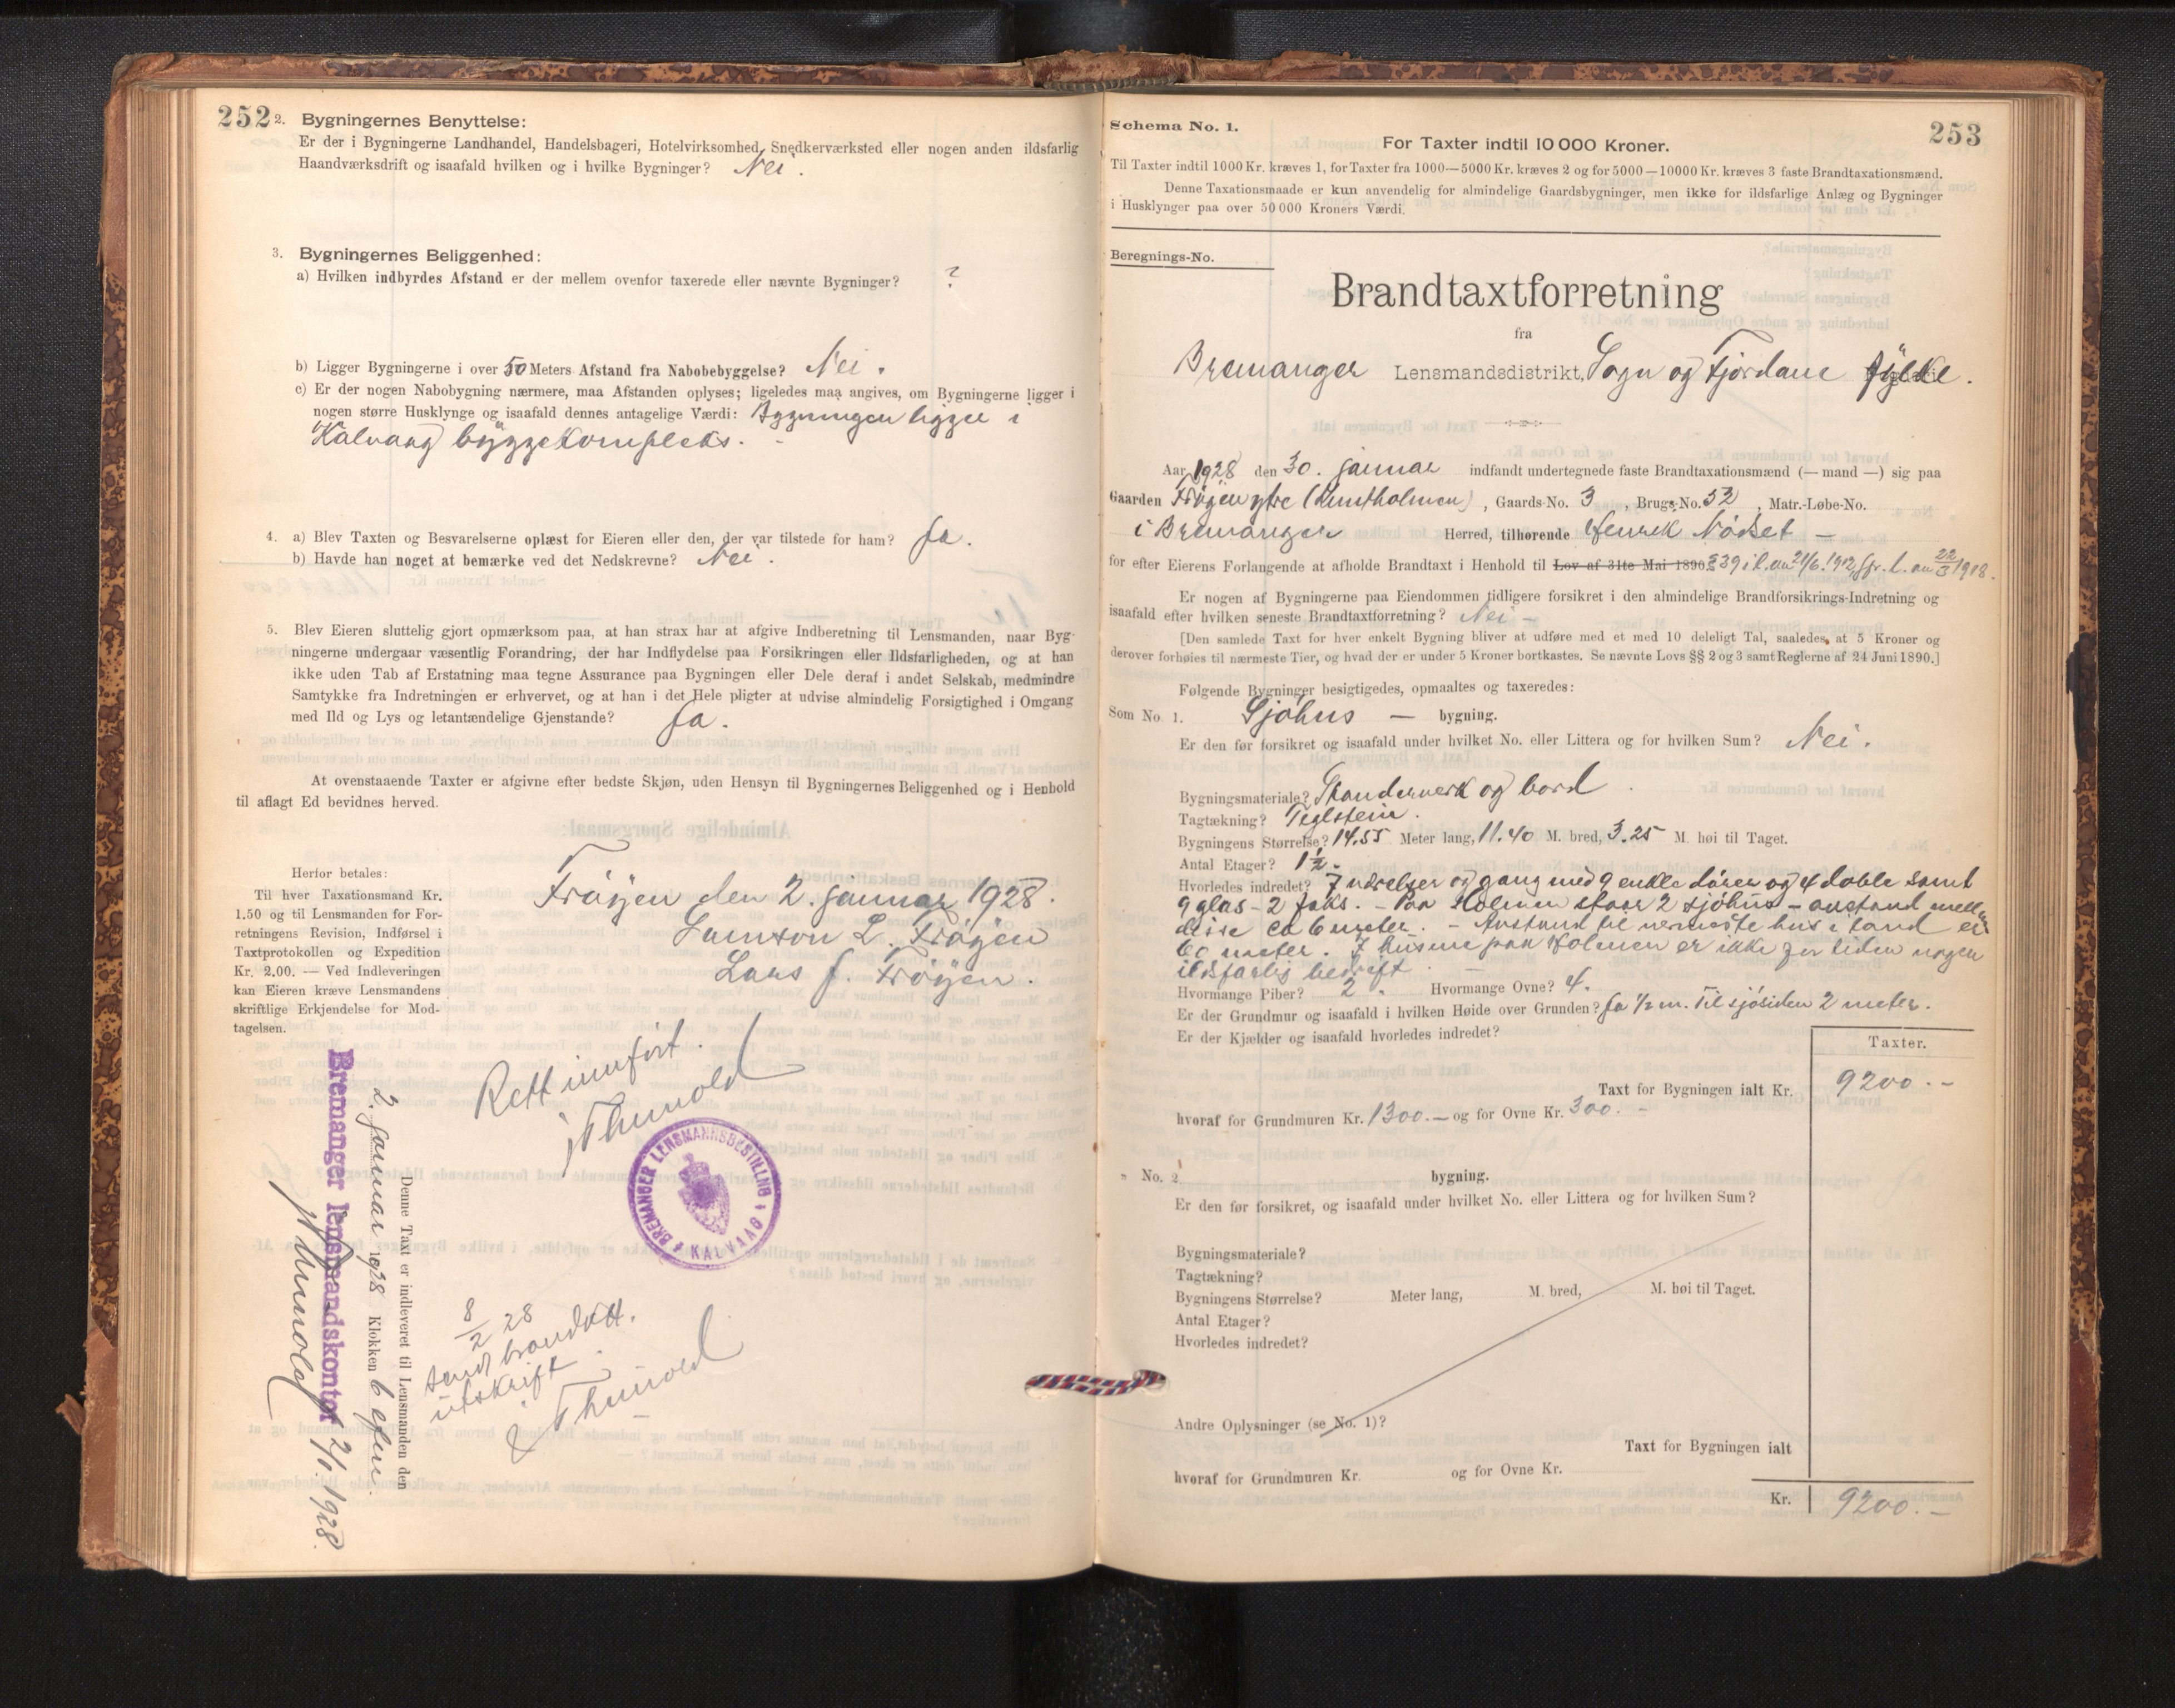 252
2. Bygningernes Benyttelse:
Er der i Bygningerne Landhandel, Handelsbageri, Hotelvirksomhed, Snedkerværksted eller nogen anden ildsfarlig
Haandværksdrift og isaafald hvilken og i hvilke Bygninger? Nei.
3. Bygningernes Beliggenhed:
a) Hvilken indbyrdes Afstand er der mellem ovenfor taxerede eller nævnte Bygninger? ?
b) Ligger Bygningerne i over 50 Meters Afstand fra Nabobebyggelse? Nei.
c) Er der nogen Nabobygning nærmere, maa Afstanden oplyses; ligeledes maa angives, om Bygningerne ligger i
nogen større Husklynge og isaafald dennes antagelige Værdi: Bygningen ligger i
Kalvaag byggekompleks. -
4. a) Blev Taxten og Besvarelserne oplæst for Eieren eller den, der var tilstede for ham? Ja.
b) Havde han noget at bemærke ved det Nedskrevne? Nei.
5. Blev Eieren sluttelig gjort opmærksom paa, at han strax har at afgive Indberetning til Lensmanden, naar Byg-
ningerne undergaar væsentlig Forandring, der har Indflydelse paa Forsikringen eller Ildsfarligheden, og at han
ikke uden Tab af Erstatning maa tegne Assurance paa Bygningen eller Dele deraf i andet Selskab, medmindre
Samtykke fra Indretningen er erhvervet, og at han i det Hele pligter at udvise almindelig Forsigtighed i Omgang
med Ild og Lys og letantændelige Gjenstande? Ja.
At ovenstaaende Taxter er afgivne efter bedste Skjøn, uden Hensyn til Bygningernes Beliggenhed og i Henhold
til aflagt Ed bevidnes herved.
Frøyen den 2. januar 1928.
Samson L. Frøyen
Lars J. Frøyen.
Herfor betales:
Til hver Taxationsmand Kr.
1.50 og til Lensmanden for For-
retningens Revision, Indførsel i
Taxtprotokollen og Expedition
Kr. 2.00. — Ved Indleveringen
kan Eieren kræve Lensmandens
skriftlige Erkjendelse for Mod-
tagelsen.
Rett innført.
Thunold
BREMANGER LENSMANNSBESTILLNG
KALVAAG
Denne Taxt er indleveret til Lensmanden den
2. januar 1928 Klokken 6 efm.
Bremanger lensmandskontor 2/1. 1928.
Thunold
8/2 28
send brandktt.
utskrift.
Thunold
Schema No. 1.
253
For Taxter indtil 10 000 Kroner.
Til Taxter indtil 1000 Kr. kræves 1, for Taxter fra 1000—5000 Kr. kræves 2 og for 5000—10000 Kr. kræves 3 faste Brandtaxationsmænd.
Denne Taxationsmaade er kun anvendelig for almindelige Gaardsbygninger, men ikke for ildsfarlige Anlæg og Bygninger
i Husklynger paa over 50 000 Kroners Værdi.
Beregnings-No.
Brandtaxtforretning
fra
Bremanger Lensmandsdistrikt, Sogn og Fjordane fylke.
Aar 1928 den 30. januar indfandt undertegnede faste Brandtaxationsmænd (— mand —) sig paa
Gaarden Frøyen ytre (Smtholmen), Gaards-No. 3, Brugs-No. 52, Matr.-Løbe-No.
i Bremanger Herred, tilhørende Henrik Nødset —
for efter Eierens Forlangende at afholde Brandtaxt i Henhold til Lov af 31te Mai 1890 § 39 i l. av 21/6. 1912, jfr. l. av 22/3 1918.
Er nogen af Bygningerne paa Eiendommen tidligere forsikret i den almindelige Brandforsikrings-Indretning og
isaafald efter hvilken seneste Brandtaxtforretning? Nei -
[Den samlede Taxt for hver enkelt Bygning bliver at udføre med et med 10 deleligt Tal, saaledes, at 5 Kroner og
derover forhøies til nærmeste Tier, og hvad der er under 5 Kroner bortkastes. Se nævnte Lovs §§ 2 og 3 samt Reglerne af 24 Juni 1890.]
Følgende Bygninger besigtigedes, opmaaltes og taxeredes:
Som No. 1. Sjøhus — bygning.
Er den før forsikret og isaafald under hvilket No. eller Littera og for hvilken Sum? Nei.
Bygningsmateriale? Standerverk og bord
Tagtækning? Teglstein.
Bygningens Størrelse? 14.55 Meter lang, 11.40 M. bred, 3.25 M. høi til Taget.
Antal Etager? 1½.
Hvorledes indredet? 7 værelser og gang med 9 enkle dører og 4 doble samt
9 glas - 2 faks. - Paa Holmen staar 2 sjøhus - avstand mellem
disse ca 6 meter. - Avstand til nermeste hus i land er
60 meter. I husene paa Holmen er ikke for tiden nogen
ildsfarlig bedrift.
Hvormange Piber? 2. Hvormange Ovne? 4.
Er der Grundmur og isaafald i hvilken Høide over Grunden? Ja ½ m. Til sjøsiden 2 meter.
Er der Kjælder og isaafald hvorledes indredet?
Taxter.
Taxt for Bygningen ialt Kr. 9200.-
hvoraf for Grundmuren Kr. 1300.— og for Ovne Kr. 300.-
„ No. 2 bygning.
Er den før forsikret, og isaafald under hvilket No. eller Littera og for hvilken Sum?
Bygningsmateriale?
Tagtækning?
Bygningens Størrelse? Meter lang, M. bred, M. høi til Taget.
Antal Etager?
Hvorledes indredet?
Andre Oplysninger (se No. 1)?
Taxt for Bygningen ialt
hvoraf for Grundmuren Kr. og for Ovne Kr.
Kr. 9200.-